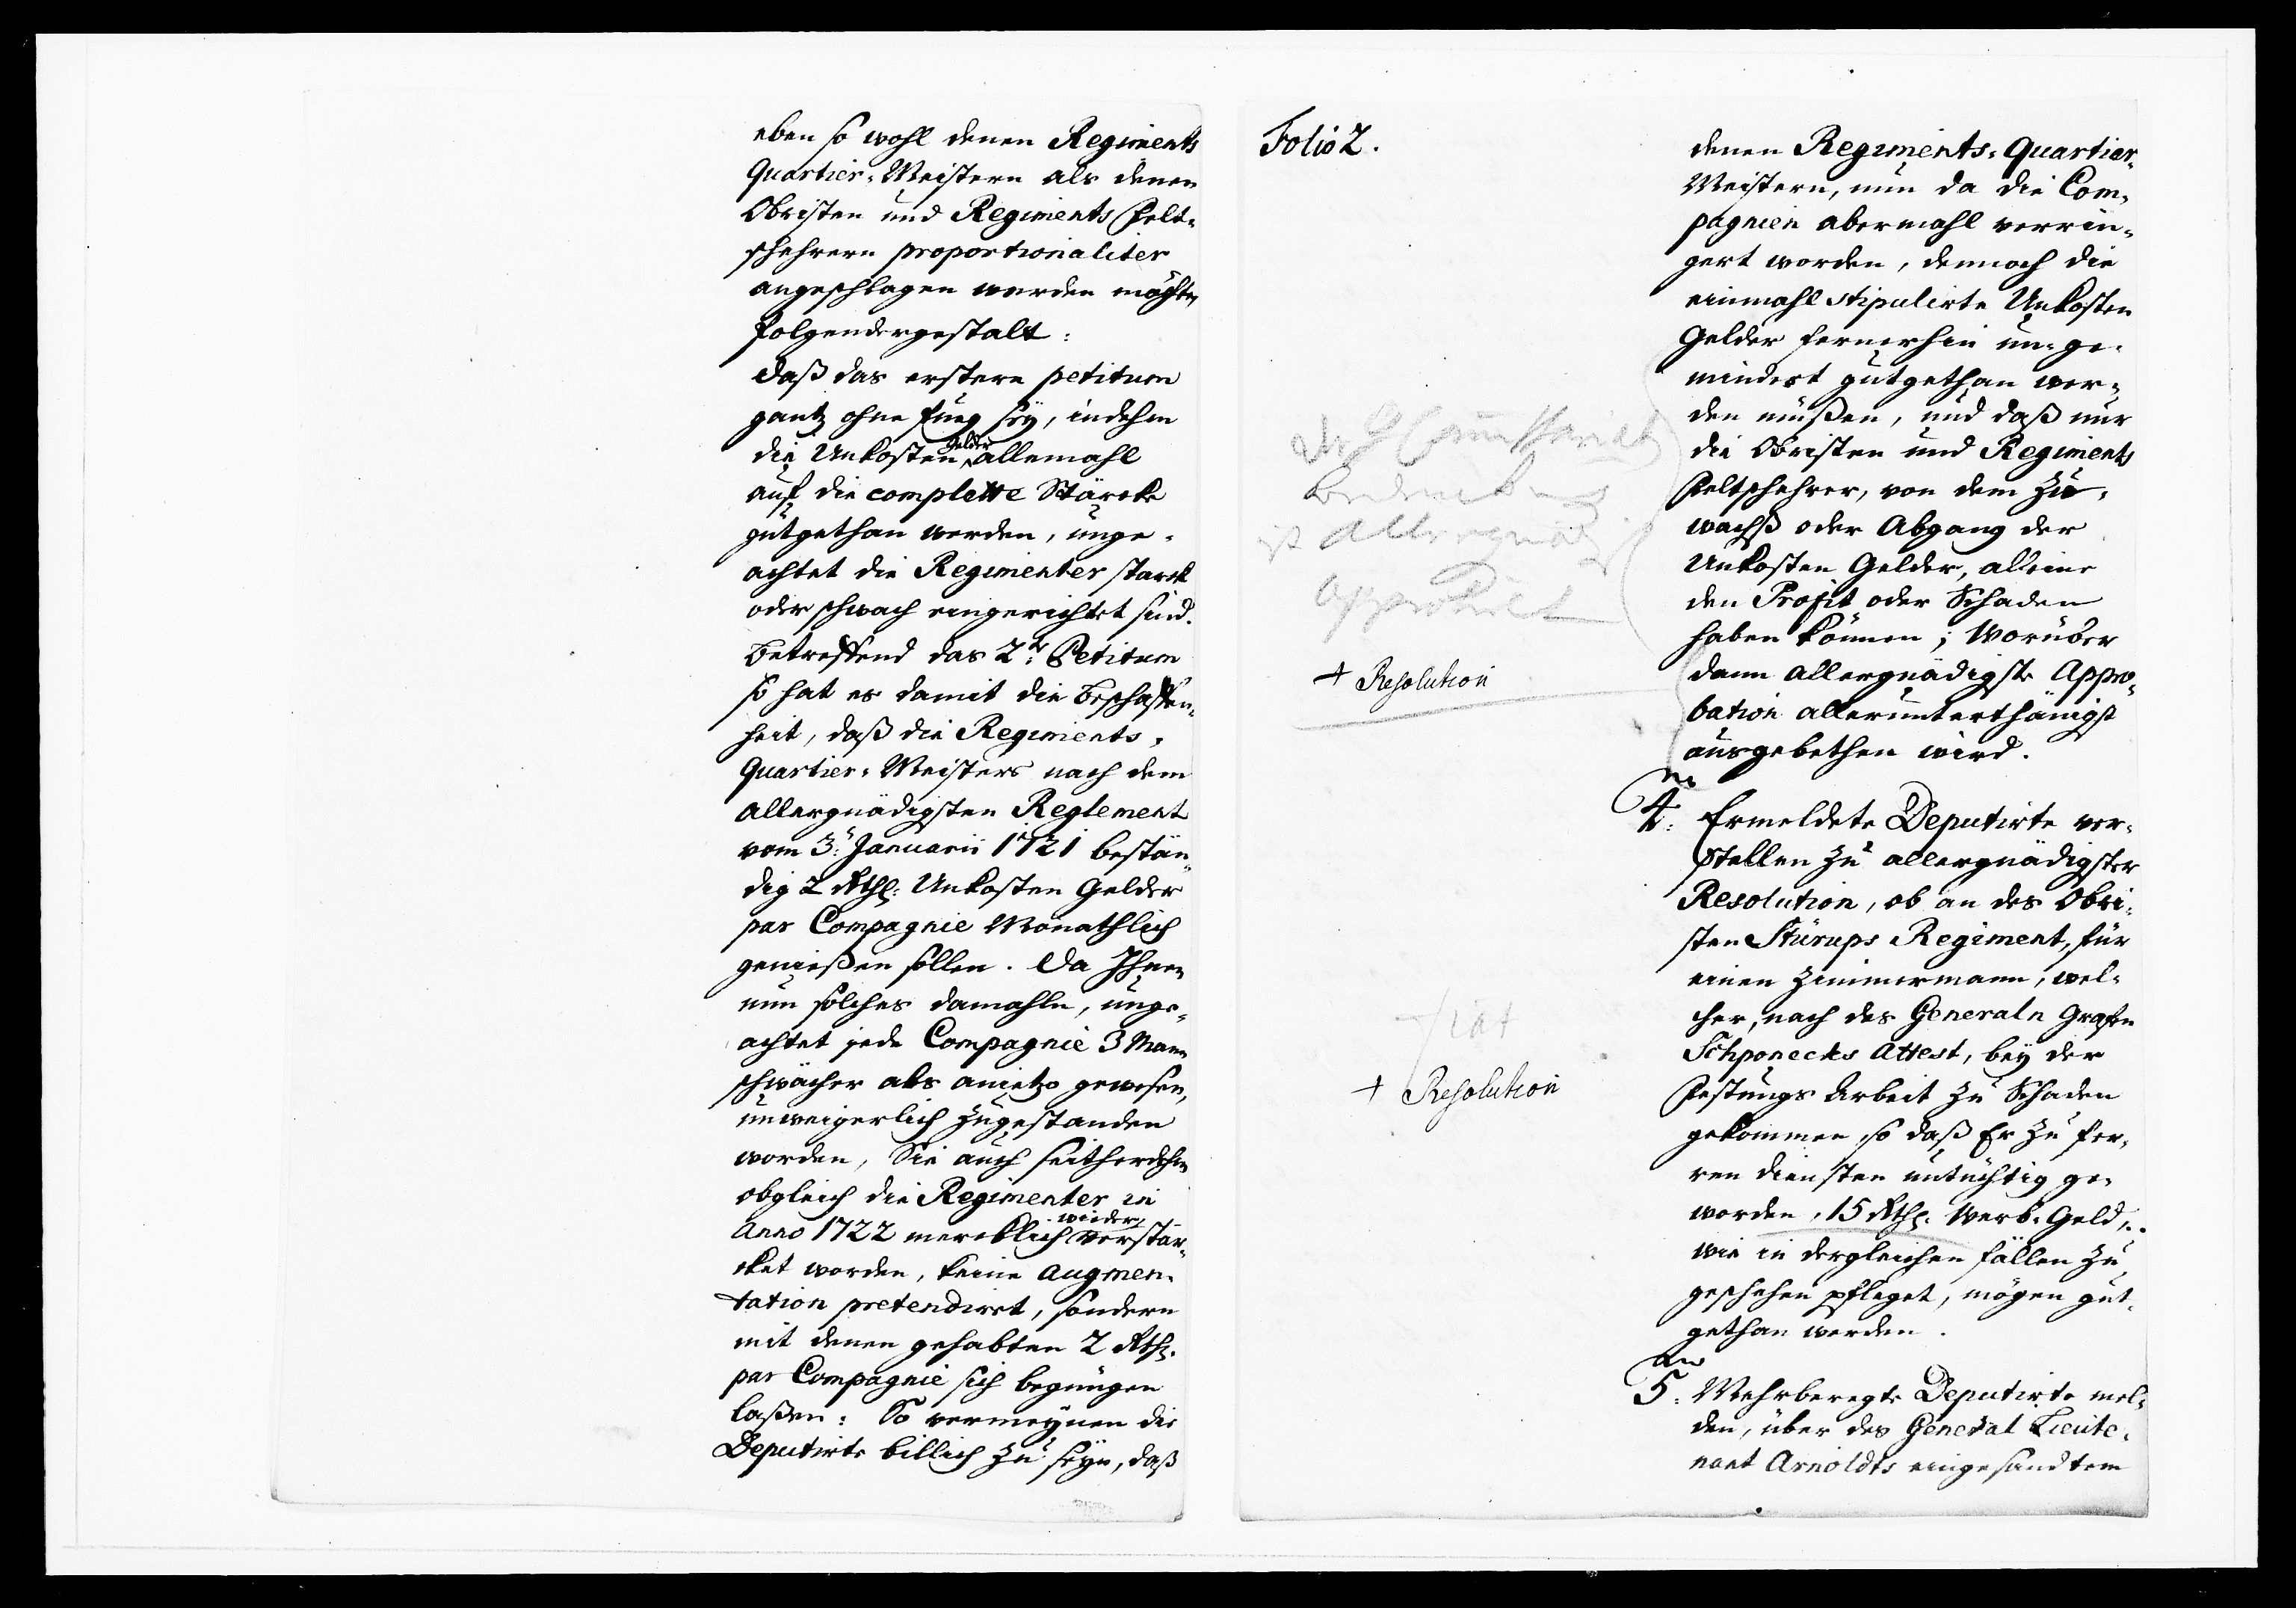 eben so wohl denen Regiments
Quartier-Meistern als denen
Obristen und Regiments Felt-
schehrern proportionaliter
angeschlagen werden möchte,
folgendergestalt:
daß das erstere petitum
gantz ohne fueg seÿ, indehm
die Unkosten Gelder allemahl
auf die complette Stärcke
gutgethan werden, unge-
achtet die Regimenter starck
oder schwach eingerichtet sind.
Betreffend das 2te: Petitum
so hat es damit die Beschaffen-
heit, daß die Regiments-
Quartier-Meisters nach dem
allergnädigsten Reglement
vom 3: Januarii 1721 bestän-
dig 2 Rthl: Unkosten Gelder
par Compagnie Monathlich
genießen sollen. Da Ihnen
nun solches damahln, unge-
achtet jede Compagnie 3 Mann
schwächer als anietzo gewesen,
unweigerlich zugestanden
worden, Sie auch seitherdehm
obgleich die Regimenter in
Anno 1722 mercklich wieder verstär-
cket worden, keine Augmen-
tation pretendiret, sondern
mit denen gehabten 2 Rthl.
par Compagnie sich begnügen
laßen: So vermeÿnen die
Deputirte billich zu seÿn, daß
Folio 2.
denen Regiments-Quartier-
Meistern, nun da die Com-
pagnien abermahl verrin-
gert worden, dennoch die
einmahl stipulirte Unkosten
Gelder fernerhin un-ge-
mindert gutgethan wer-
den müßen, und daß nur
die Obristen und Regiments
Feltschehrer, von dem Zu-
wachß oder Abgang der
Unkosten Gelder, alleine
den Profit oder Schaden
haben können; Worüber
dann allergnädigste Appro-
bation allerunterthänigst
ausgebethen wird.
Commissariats
ist Allergnädigst
approbirt
+ Resolution
4. Ermeldete Deputirte ver-
stellen zu allergnädigster
Resolution, ob an des Obri-
sten Stürups Regiment, für
einen Zimmermann, wel-
cher, nach des Generaln Grafen
Schponecks Attest, beÿ der
Festungs Arbeit zu Schaden
gekommen, so daß Er zu fer-
ren diensten untüchtig ge-
worden, 15 Rthl. Werb-Geld,
wie in dergleichen fällen zu
geschehen pfleget, mögen gut-
gethan werden.
fiat
+ Resolution
5. Mehrberegte Deputirte mel-
den, über des General Lieute-
nant Arnoldts eingesandtem